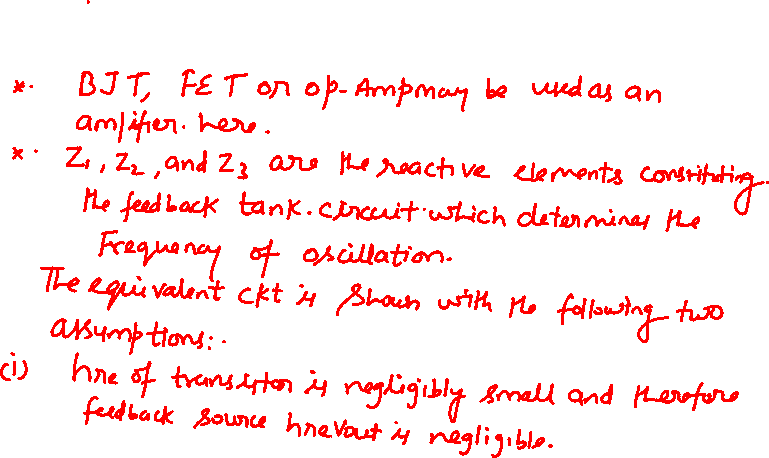 *. BJT, FET or op-Amp may be used as an
amplifier. here.
*. Z1, Z2, and Z3 are the reactive elements constituting
the feedback tank. circuit which determines the
Frequency of oscillation.
The equivalent ckt is shown with the following two
assumptions:.
(i) hre of transistor is negligibly small and therefore
feedback source hreVout is negligible.